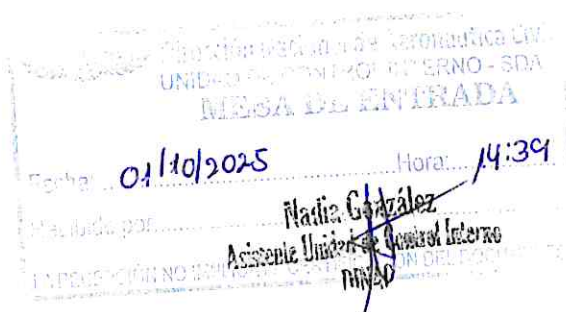 Dirección Nacional de Aeronáutica Civil
UNIDAD DE CONTROL INTERNO - SDA
MESA DE ENTRADA
Fecha: 01/10/2025 Hora: 14:39
Recibido por
Nadia González
Asistente Unidad de Control Interno
DINAC
LA RECEPCIÓN NO IMPLICA DEL DOCUMENTO